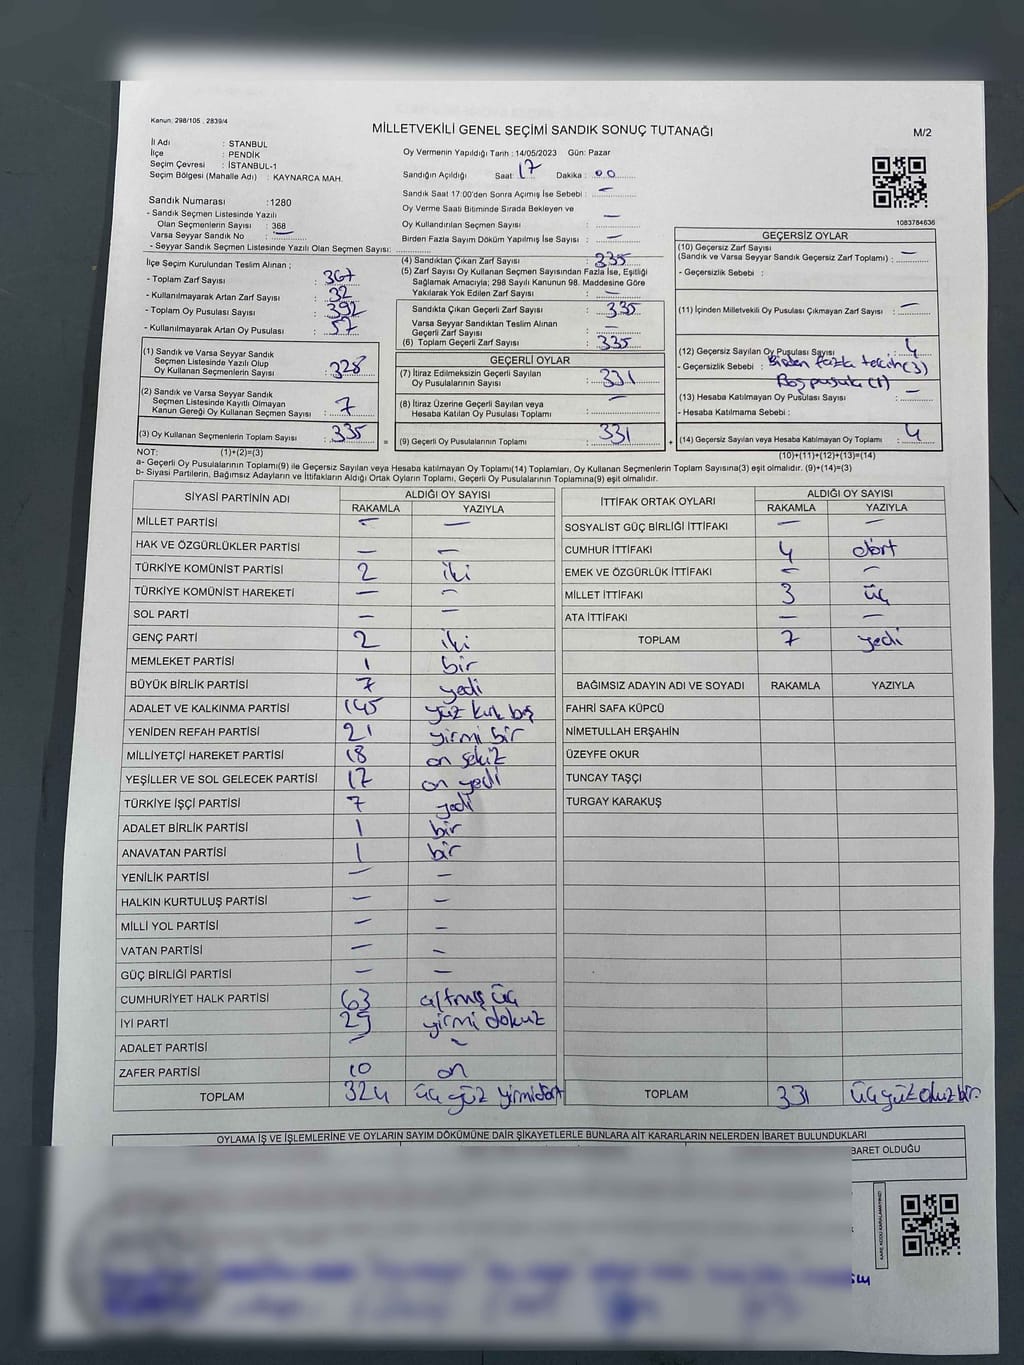 Kanun. 298/105 , 2839/4
MİLLETVEKİLİ GENEL SEÇİMİ SANDIK SONUÇ TUTANAĞI
M/2
İl Adı : STANBUL
İlçe : PENDİK
Seçim Çevresi : İSTANBUL-1
Seçim Bölgesi (Mahalle Adı) : KAYNARCA MAH.
Oy Vermenin Yapıldığı Tarih : 14/05/2023 Gün: Pazar
Sandığın Açıldığı Saat: 17 Dakika : 00
Sandık Saat 17:00'den Sonra Açımış İse Sebebi : —
Oy Verme Saati Bitiminde Sırada Bekleyen ve
Oy Kullandırılan Seçmen Sayısı : —
Birden Fazla Sayım Döküm Yapılmış İse Sayısı : —
1083784636
Sandık Numarası :1280
- Sandık Seçmen Listesinde Yazılı
Olan Seçmenlerin Sayısı : 368
Varsa Seyyar Sandık No : —
- Seyyar Sandık Seçmen Listesinde Yazılı Olan Seçmen Sayısı:
İlçe Seçim Kurulundan Teslim Alınan ;
- Toplam Zarf Sayısı : 367
- Kullanılmayarak Artan Zarf Sayısı : 32
- Toplam Oy Pusulası Sayısı : 392
- Kullanılmayarak Artan Oy Pusulası : 57
(1) Sandık ve Varsa Seyyar Sandık
Seçmen Listesinde Yazılı Olup
Oy Kullanan Seçmenlerin Sayısı : 328
(2) Sandık ve Varsa Seyyar Sandık
Seçmen Listesinde Kayıtlı Olmayan
Kanun Gereği Oy Kullanan Seçmen Sayısı : 7
(3) Oy Kullanan Seçmenlerin Toplam Sayısı : 335
(4) Sandıktan Çıkan Zarf Sayısı : 335
(5) Zarf Sayısı Oy Kullanan Seçmen Sayısından Fazla İse, Eşitliği
Sağlamak Amacıyla; 298 Sayılı Kanunun 98. Maddesine Göre
Yakılarak Yok Edilen Zarf Sayısı : —
Sandıkta Çıkan Geçerli Zarf Sayısı : 335
Varsa Seyyar Sandıktan Teslim Alınan
Geçerli Zarf Sayısı : —
(6) Toplam Geçerli Zarf Sayısı : 335
GEÇERLİ OYLAR
(7) İtiraz Edilmeksizin Geçerli Sayılan
Oy Pusulalarının Sayısı : 331
(8) İtiraz Üzerine Geçerli Sayılan veya
Hesaba Katılan Oy Pusulası Toplamı : —
= (9) Geçerli Oy Pusulalarının Toplamı : 331 +
GEÇERSİZ OYLAR
(10) Geçersiz Zarf Sayısı
(Sandık ve Varsa Seyyar Sandık Geçersiz Zarf Toplamı) : —
- Geçersizlik Sebebi :
(11) İçinden Milletvekili Oy Pusulası Çıkmayan Zarf Sayısı : —
(12) Geçersiz Sayılan Oy Pusulası Sayısı : 4
- Geçersizlik Sebebi : Birden fazla tercih(3)
Boş pusula (1)
(13) Hesaba Katılmayan Oy Pusulası Sayısı : —
- Hesaba Katılmama Sebebi :
(14) Geçersiz Sayılan veya Hesaba Katılmayan Oy Toplamı : 4
NOT: (1)+(2)=(3)
(10)+(11)+(12)+(13)=(14)
a- Geçerli Oy Pusulalarının Toplamı(9) ile Geçersiz Sayılan veya Hesaba katılmayan Oy Toplamı(14) Toplamları, Oy Kullanan Seçmenlerin Toplam Sayısına(3) eşit olmalıdır. (9)+(14)=(3)
b- Siyasi Partilerin, Bağımsız Adayların ve İttifakların Aldığı Ortak Oyların Toplamı, Geçerli Oy Pusulalarının Toplamına(9) eşit olmalıdır.
SİYASİ PARTİNİN ADI ALDIĞI OY SAYISI
RAKAMLA YAZIYLA
MİLLET PARTİSİ — —
HAK VE ÖZGÜRLÜKLER PARTİSİ — —
TÜRKİYE KOMÜNİST PARTİSİ 2 iki
TÜRKİYE KOMÜNİST HAREKETİ — —
SOL PARTİ — —
GENÇ PARTİ 2 iki
MEMLEKET PARTİSİ 1 bir
BÜYÜK BİRLİK PARTİSİ 7 yedi
ADALET VE KALKINMA PARTİSİ 145 yüz kırk beş
YENİDEN REFAH PARTİSİ 21 yirmi bir
MİLLİYETÇİ HAREKET PARTİSİ 18 on sekiz
YEŞİLLER VE SOL GELECEK PARTİSİ 17 on yedi
TÜRKİYE İŞÇİ PARTİSİ 7 yedi
ADALET BİRLİK PARTİSİ 1 bir
ANAVATAN PARTİSİ 1 bir
YENİLİK PARTİSİ — —
HALKIN KURTULUŞ PARTİSİ — —
MİLLİ YOL PARTİSİ — —
VATAN PARTİSİ — —
GÜÇ BİRLİĞİ PARTİSİ — —
CUMHURİYET HALK PARTİSİ 63 altmış üç
İYİ PARTİ 29 yirmi dokuz
ADALET PARTİSİ — —
ZAFER PARTİSİ 10 on
TOPLAM 324 üç yüz yirmidört
İTTİFAK ORTAK OYLARI ALDIĞI OY SAYISI
RAKAMLA YAZIYLA
SOSYALİST GÜÇ BİRLİĞİ İTTİFAKI — —
CUMHUR İTTİFAKI 4 dört
EMEK VE ÖZGÜRLÜK İTTİFAKI — —
MİLLET İTTİFAKI 3 üç
ATA İTTİFAKI — —
TOPLAM 7 yedi
BAĞIMSIZ ADAYIN ADI VE SOYADI RAKAMLA YAZIYLA
FAHRİ SAFA KÜPCÜ
NİMETULLAH ERŞAHİN
ÜZEYFE OKUR
TUNCAY TAŞÇI
TURGAY KARAKUŞ
TOPLAM 331 üç yüz otuz bir
OYLAMA İŞ VE İŞLEMLERİNE VE OYLARIN SAYIM DÖKÜMÜNE DAİR ŞİKAYETLERLE BUNLARA AİT KARARLARIN NELERDEN İBARET BULUNDUKLARI
BARET OLDUĞU